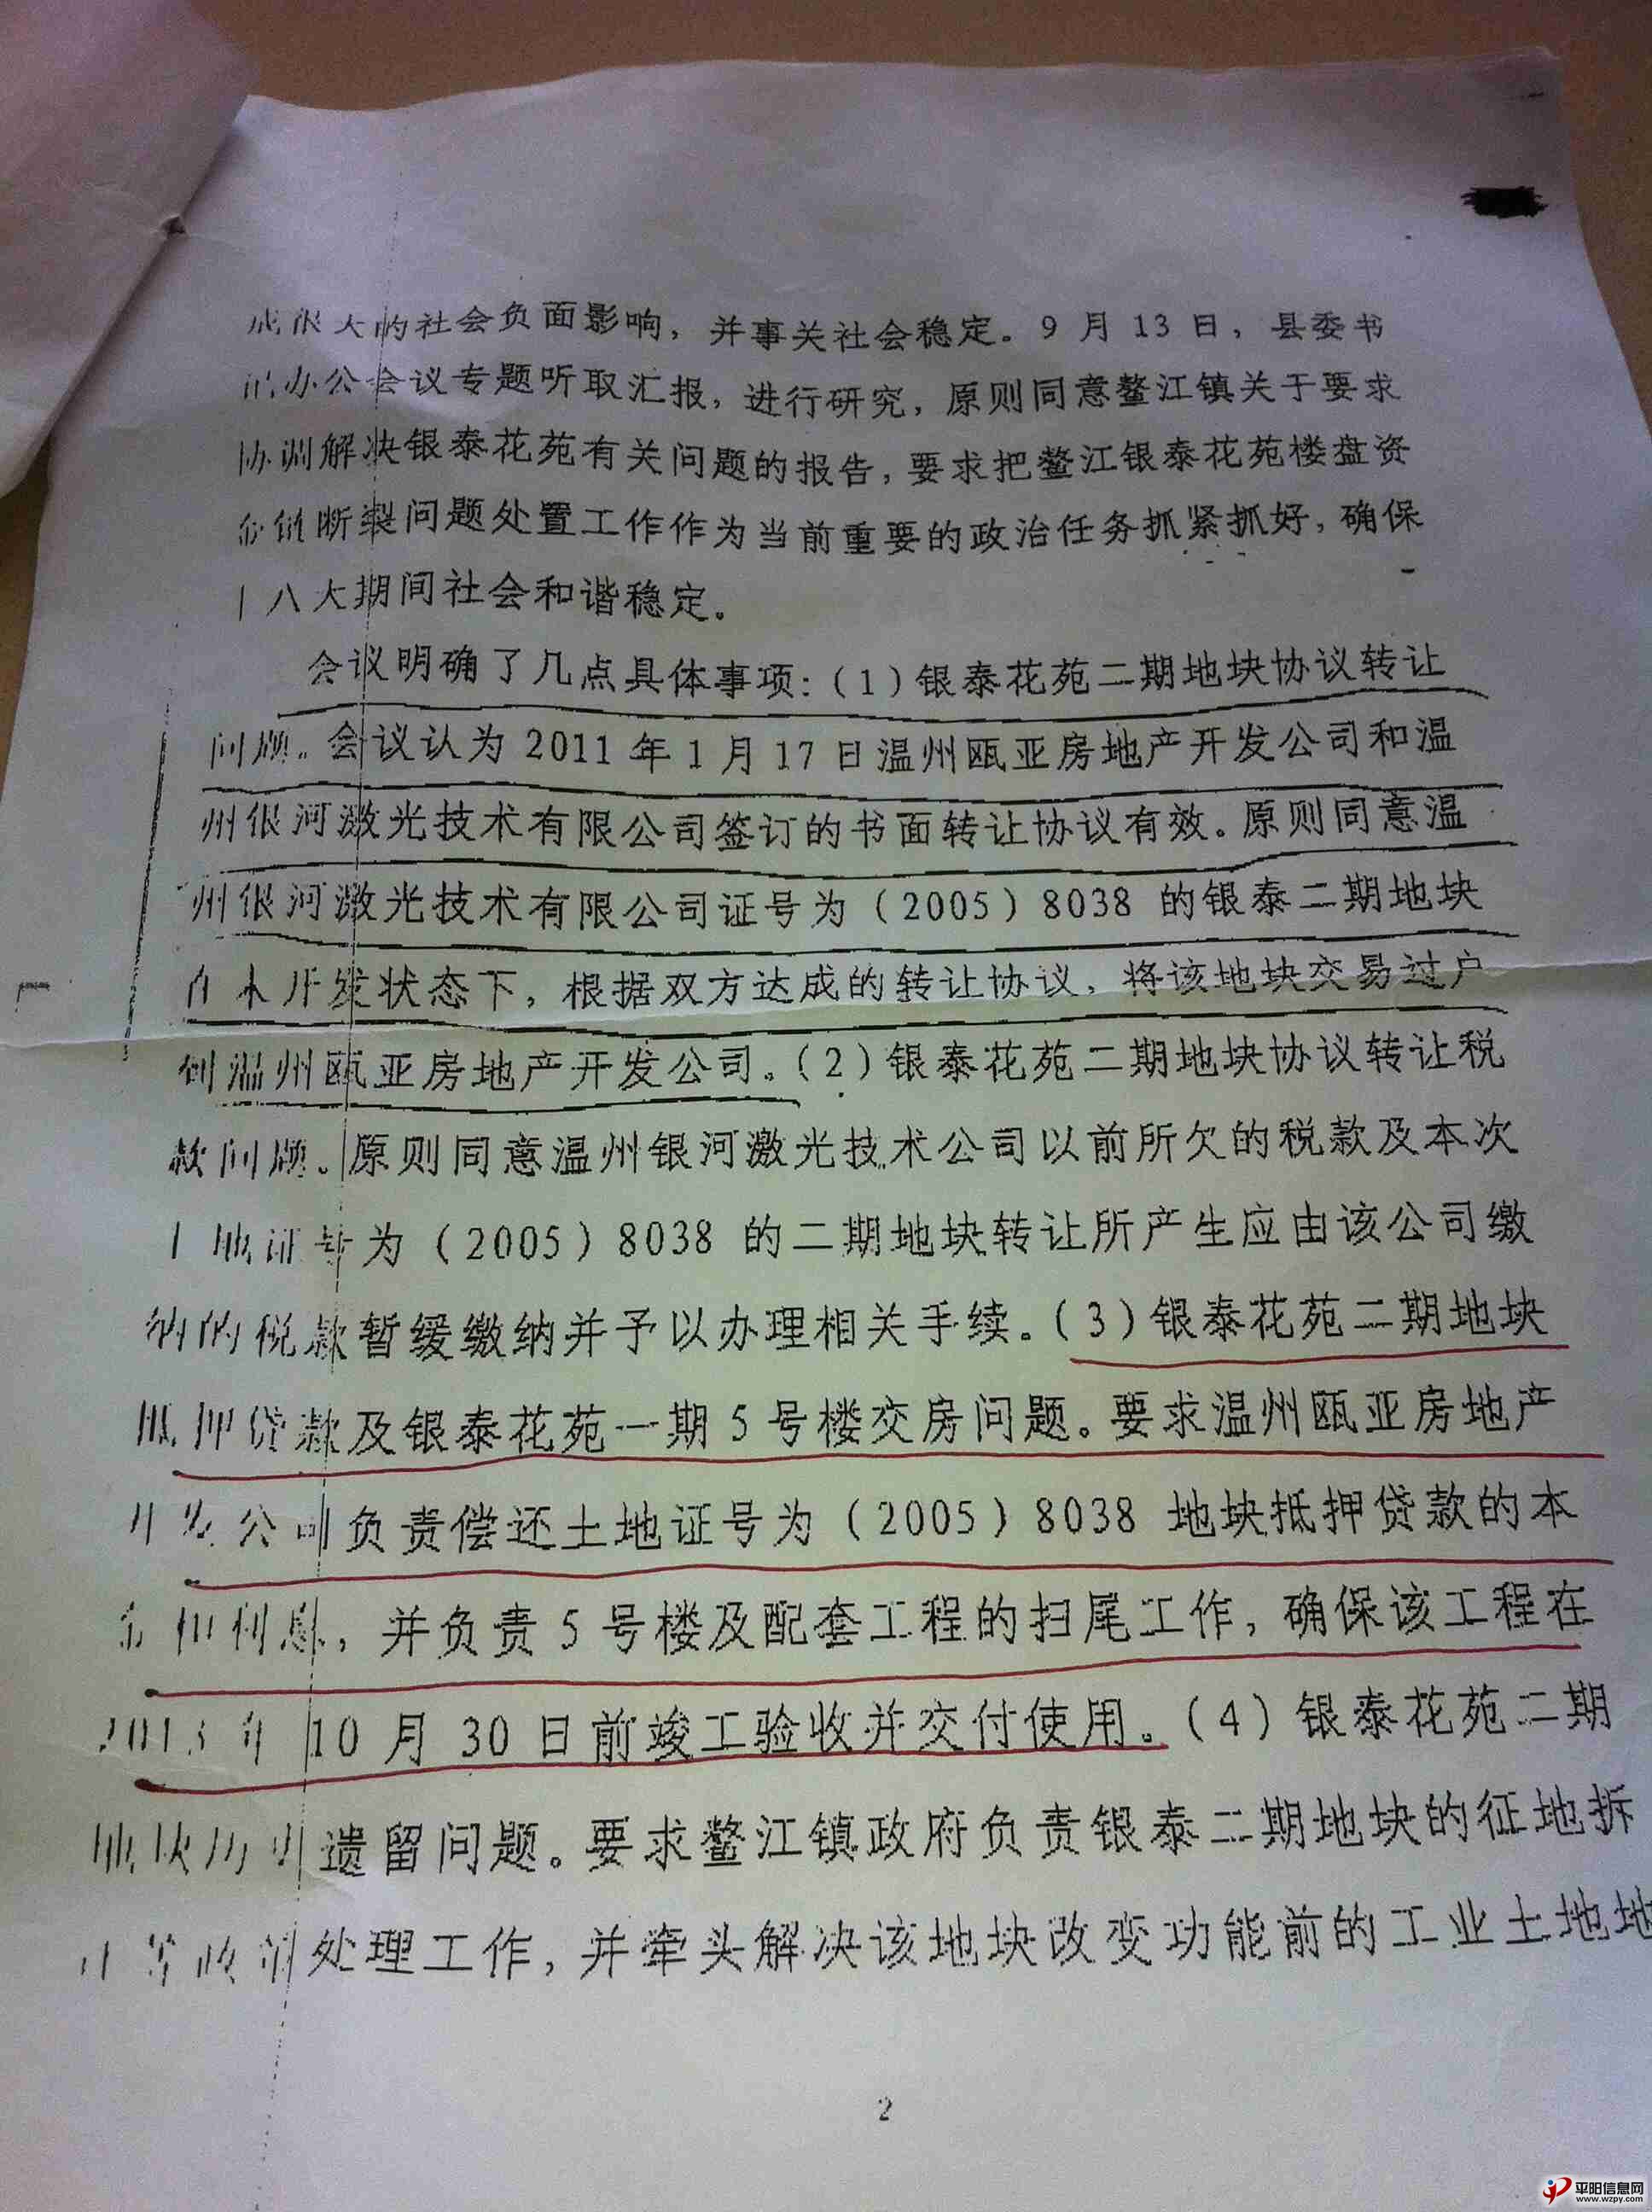 成很大的社会负面影响，并事关社会稳定。9月13日，县委书
记办公会议专题听取汇报，进行研究，原则同意鳌江镇关于要求
协调解决银泰花苑有关问题的报告，要求把鳌江银泰花苑楼盘资
金链断裂问题处置工作作为当前重要的政治任务抓紧抓好，确保
十八大期间社会和谐稳定。
会议明确了几点具体事项：（1）银泰花苑二期地块协议转让
问题。会议认为2011年1月17日温州瓯亚房地产开发公司和温
州银河激光技术有限公司签订的书面转让协议有效。原则同意温
州银河激光技术有限公司证号为（2005）8038的银泰二期地块
在未开发状态下，根据双方达成的转让协议，将该地块交易过户
到温州瓯亚房地产开发公司。（2）银泰花苑二期地块协议转让税
款问题。原则同意温州银河激光技术公司以前所欠的税款及本次
土地证号为（2005）8038的二期地块转让所产生应由该公司缴
纳的税款暂缓缴纳并予以办理相关手续。（3）银泰花苑二期地块
抵押贷款及银泰花苑一期5号楼交房问题。要求温州瓯亚房地产
开发公司负责偿还土地证号为（2005）8038地块抵押贷款的本
金和利息，并负责5号楼及配套工程的扫尾工作，确保该工程在
2013年10月30日前竣工验收并交付使用。（4）银泰花苑二期
地块历史遗留问题。要求鳌江镇政府负责银泰二期地块的征地拆
处理工作，并牵头解决该地块改变功能前的工业土地地
2
平阳信息网
www.wzpy.com